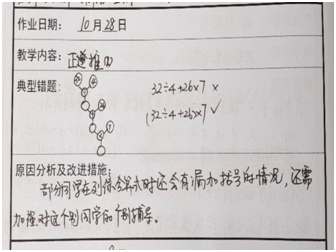 作业日期: 10月28日
教学内容: 正逆推
典型错题:
32÷4+26×7 ×
(32÷4+26)×7 ✓
原因分析及改进措施:
部分同学在列综合算式时还会有漏加括号的情况,还需
加强对这个别同学的个别辅导。